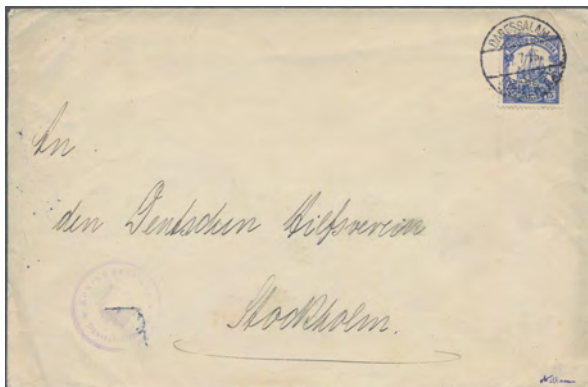 DARESSALAM
An
den Deutschen Hilfsverein
Stockholm.